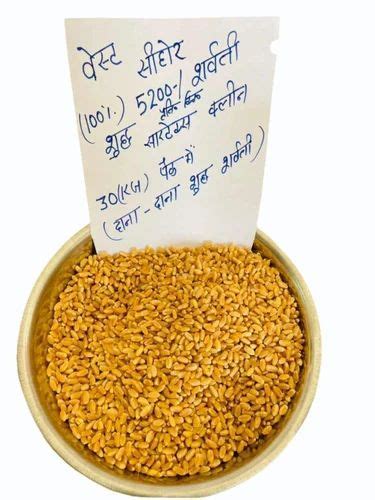 वेस्ट सीहोर
(100%.) 5200-/ शर्वती
प्रति
शुद्ध सारटेक्स क्लीन
30(KG) पैक में
(दाना - दाना शुद्ध शर्वती)